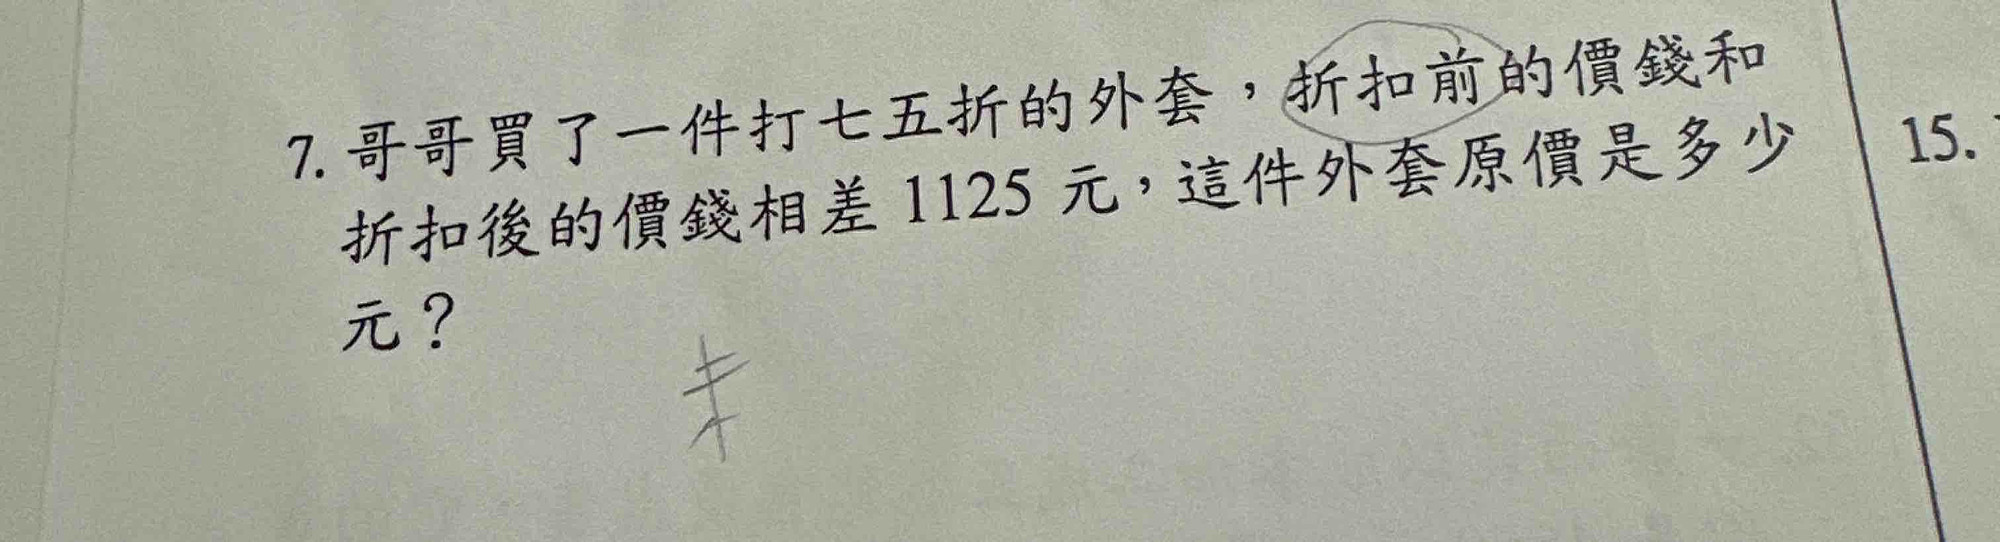 7. 哥哥買了一件打七五折的外套，折扣前的價錢和
折扣後的價錢相差 1125 元，這件外套原價是多少
元？
15.